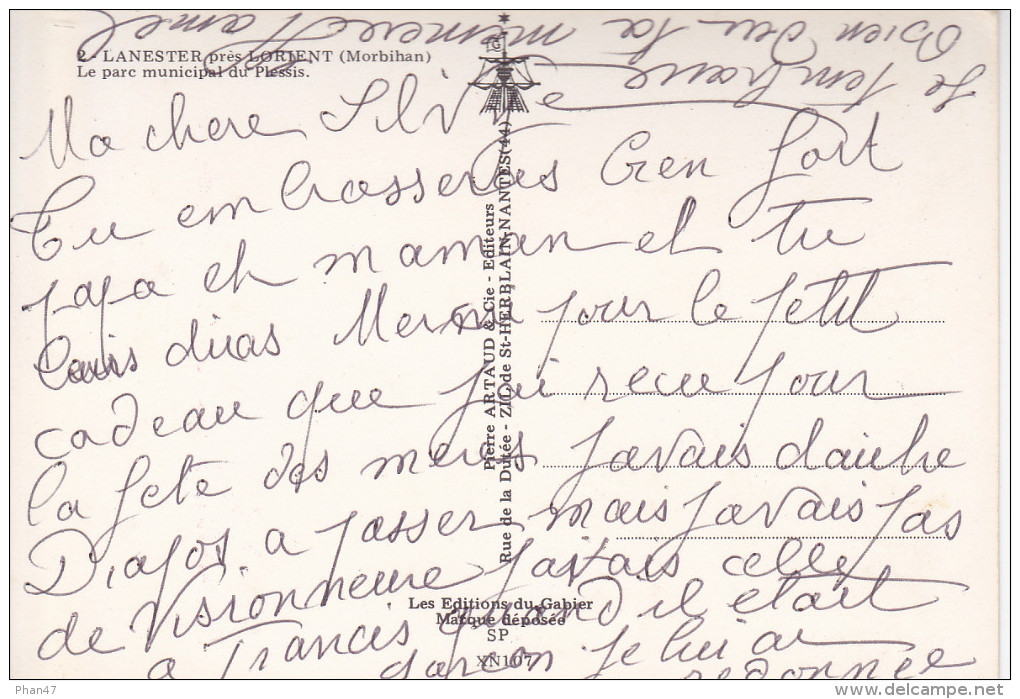 2 - LANESTER près LORIENT (Morbihan)
Le parc municipal du Plessis.
Ma chere Silvie
Tu embrasseras bien fort
papa et maman et tu
leurs diras Mersi pour le petit
cadeau que j'ai recu pour
la fete des meres javais dautre
Diapos a passer mais javais pas
de Visionneuse javais celle
a Francis quand il etait
garcon je lui ai
redonnée
Je tembrasse
bien
ta memere
Pierre ARTAUD & Cie - Editeurs
Rue de la Dutée - Z.I.L. de St-HERBLAIN-NANTES (44)
Les Editions du Gabier
Marque déposée
SP
XN107
Phan47
delcampe.net